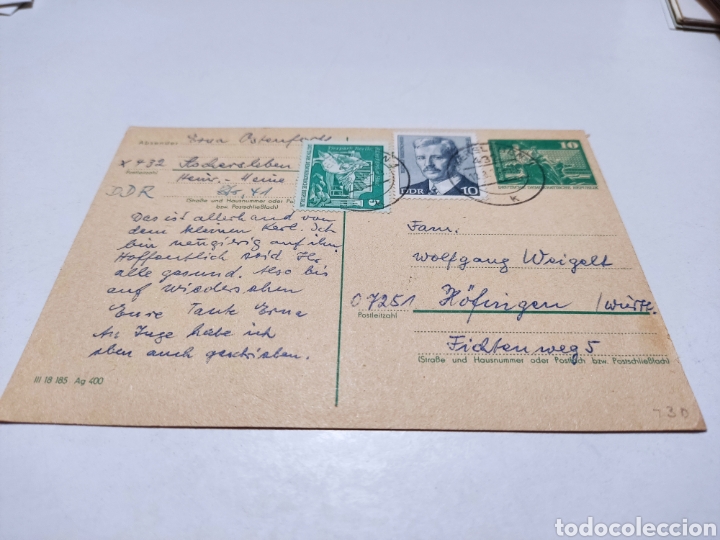 Absender:
Erna
x 432 Aschersleben
DDR
Heinr.-Heine
Str. 41
(Straße und Hausnummer oder Postfach
bzw. Postschließfach)
5
DDR 10
10
K
Das ist allerhand von
dem kleinen Kerl. Ich
bin neugierig auf ihn.
Hoffentlich seid Ihr
alle gesund. Also bis
auf Wiedersehen
Eure Tante Erna
An Inge habe ich
eben auch geschrieben.
Fam.
Wolfgang Weigelt
07251 Höfingen /Württ.
Postleitzahl
Fichtenweg 5
(Straße und Hausnummer oder Postfach bzw. Postschließfach)
III 18 185 Ag 400
730
todocoleccion